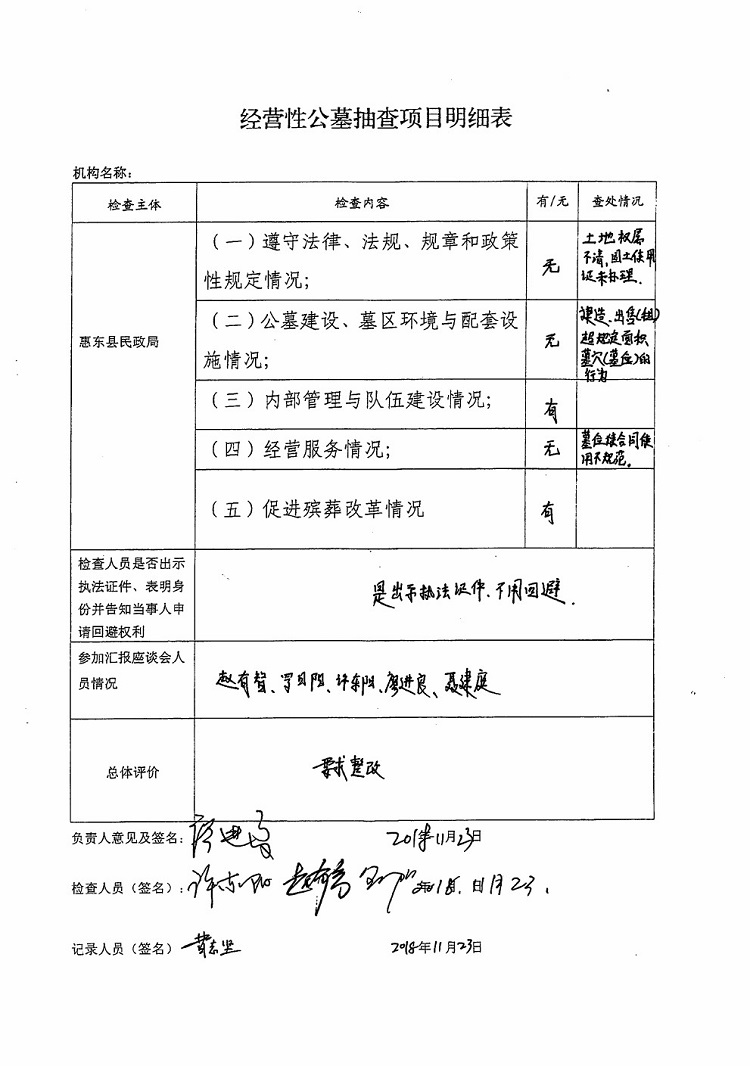 经营性公墓抽查项目明细表
机构名称：
检查主体 检查内容 有/无 查处情况
惠东县民政局
（一）遵守法律、法规、规章和政策
性规定情况；
无
土地权属
不清，国土使用
证未办理．
（二）公墓建设、墓区环境与配套设
施情况；
无
建造、出售(租)
超规定面积
墓穴(墓位)的
行为
（三）内部管理与队伍建设情况；
有
（四）经营服务情况；
无
墓位续合同使
用不规范．
（五）促进殡葬改革情况
有
检查人员是否出示
执法证件、表明身
份并告知当事人申
请回避权利
是出示执法证件、不用回避．
参加汇报座谈会人
员情况
赵有智、许东阳、廖进良、聂建庭
总体评价
要求整改
负责人意见及签名： 2018年11月23日
检查人员（签名）： 许东阳
记录人员（签名） 2018年11月23日